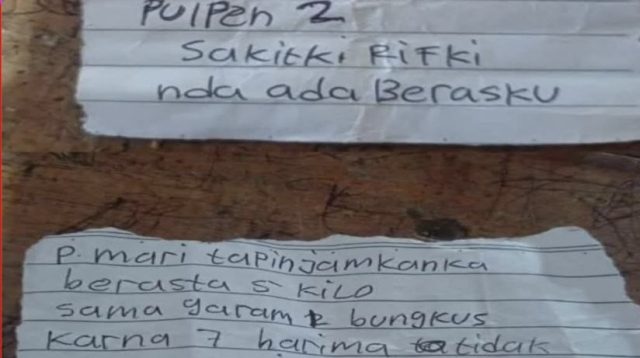 PUlPen 2
Sakitki RiFki
nda ada Berasku
P. mari tapinjamkanka
berasta 5 kilo
sama garam 2 bungkus
karna 7 harima tidak